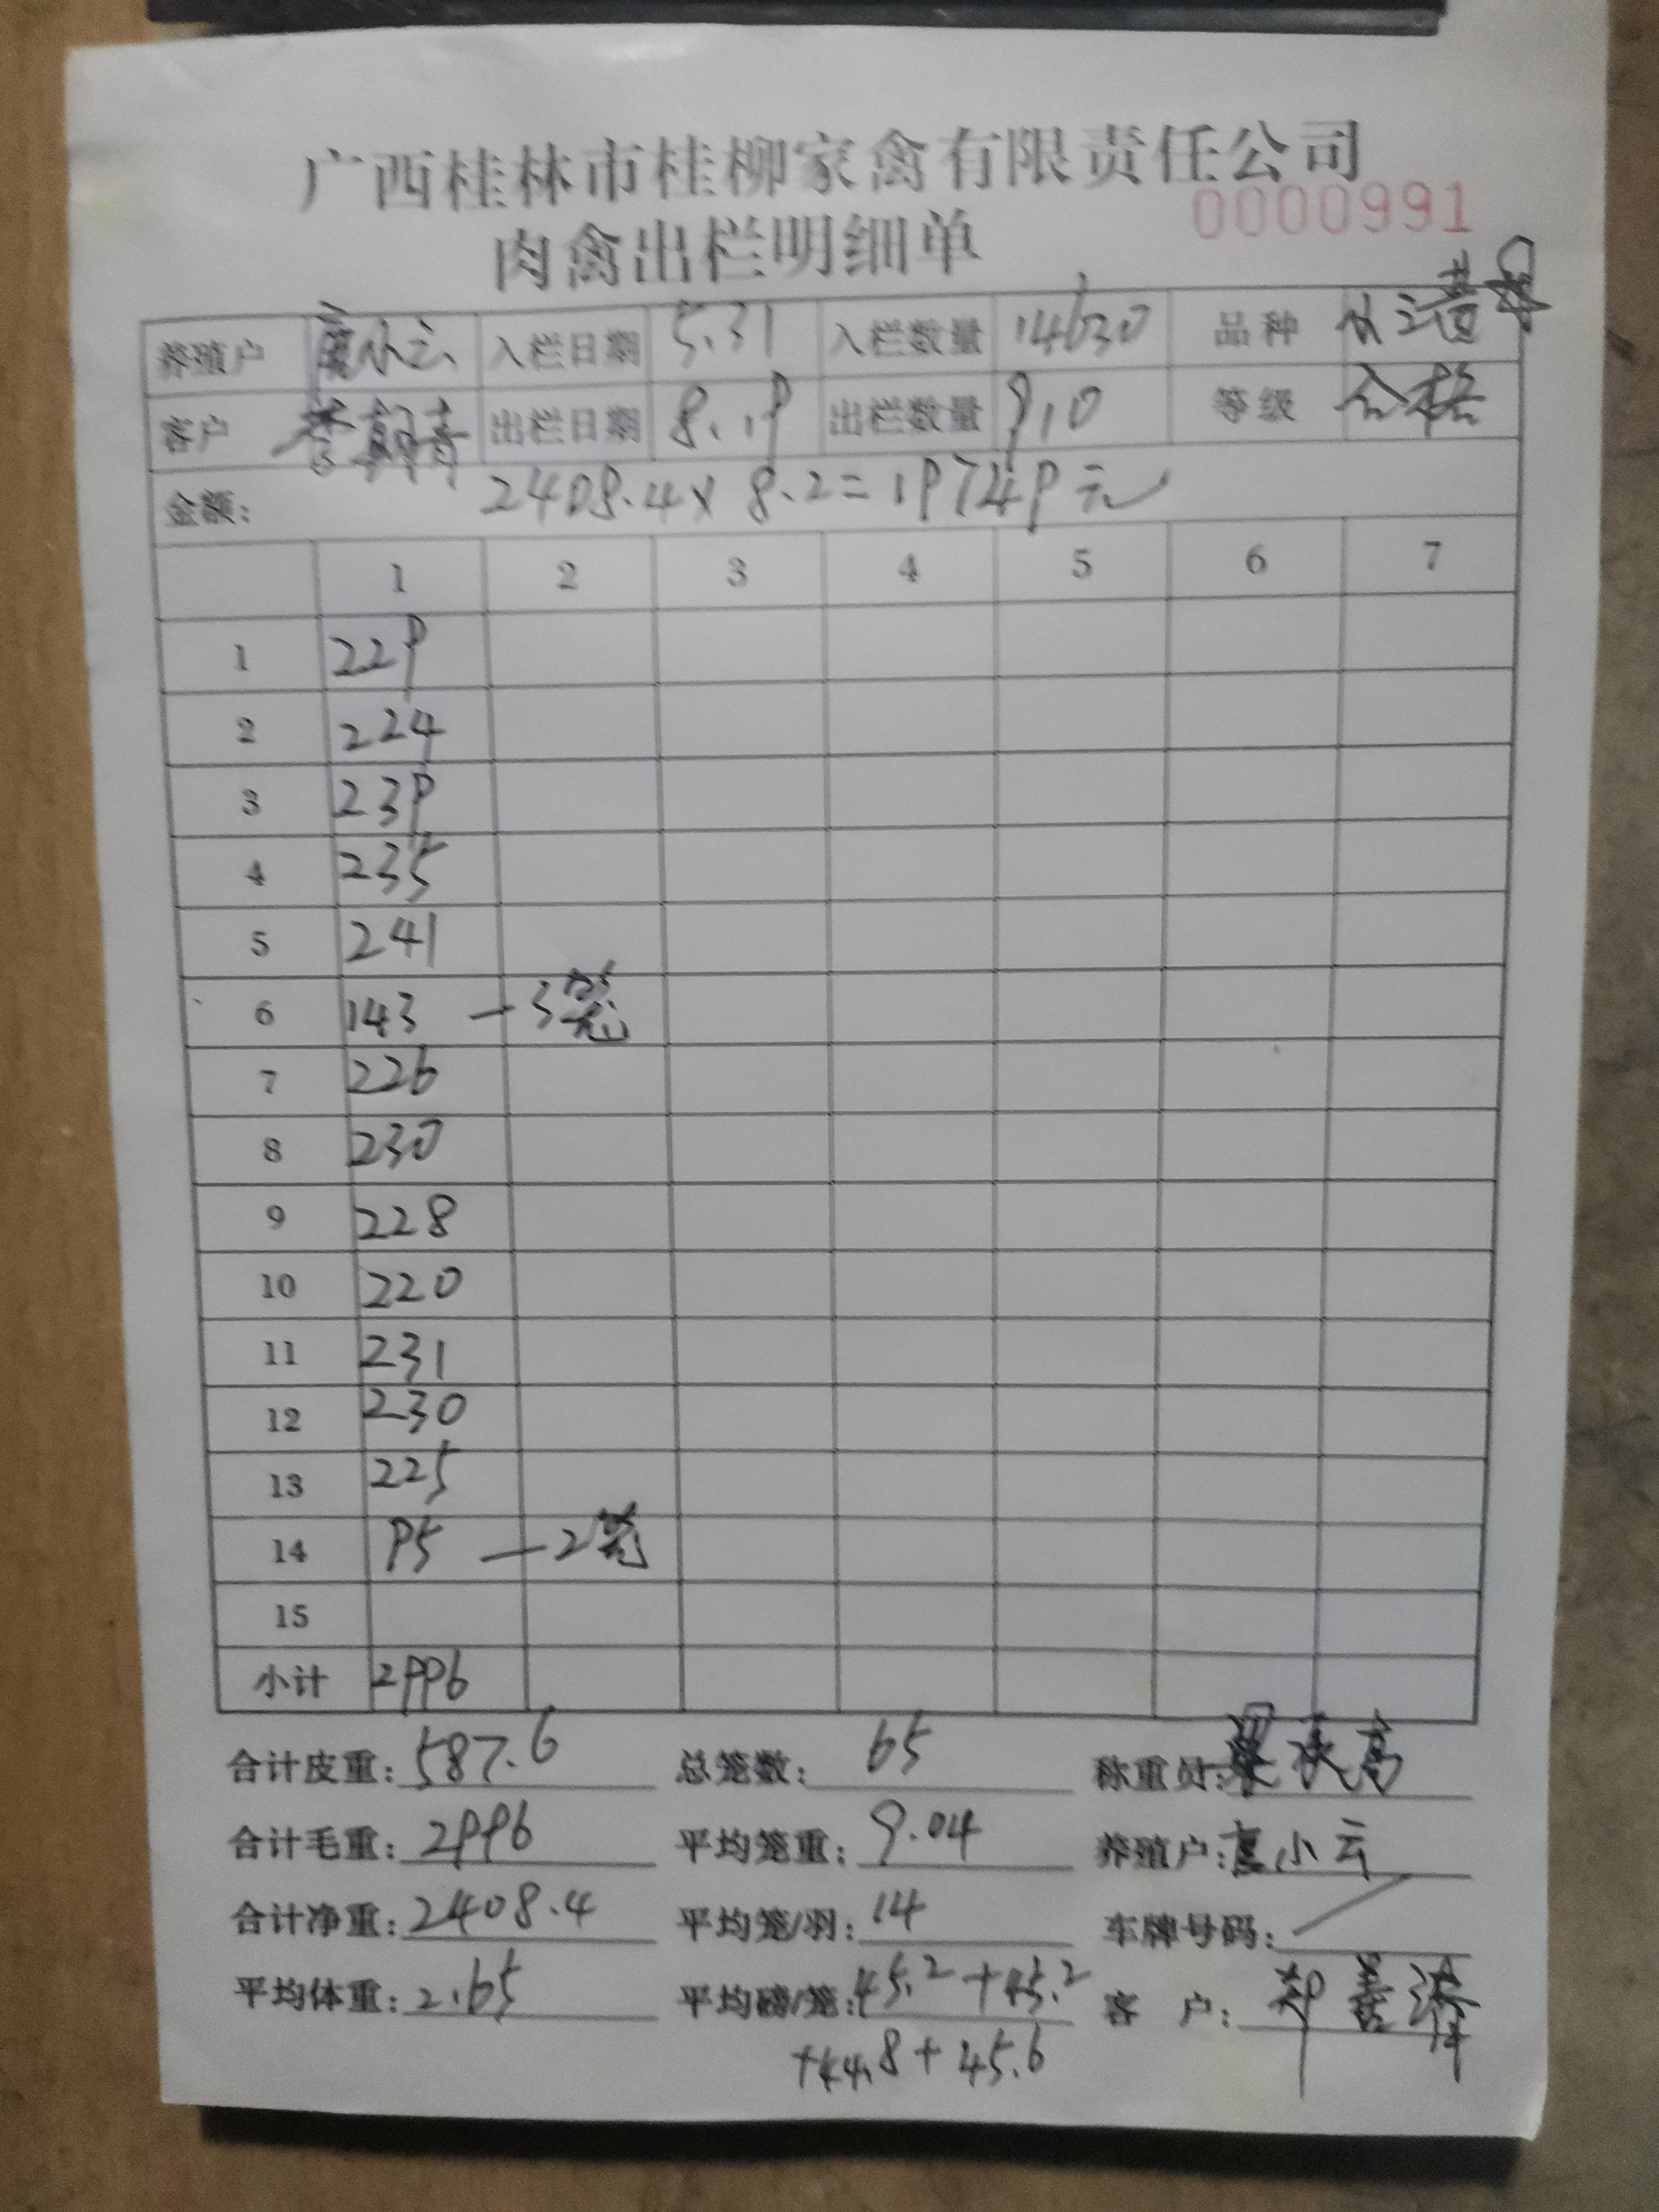 广西桂林市桂柳家禽有限责任公司
0000991
肉禽出栏明细单
养殖户 小云 入栏日期 5.31 入栏数量 14630 品种
客户 出栏日期 8.19 出栏数量 910 等级 合格
金额: 2408.4×8.2=19749元
1 2 3 4 5 6 7
1 229
2 224
3 239
4 235
5 241
6 143 —3笼
7 226
8 230
9 228
10 220
11 231
12 230
13 225
14 95 —2笼
15
小计 2996
合计皮重: 587.6 总笼数: 65 称重员:
合计毛重: 2996 平均笼重: 9.04 养殖户: 小云
合计净重: 2408.4 平均笼/羽: 14 车牌号码: /
平均体重: 2.65 平均磅/笼: 45.2+45.2 客 户:
+44.8+45.6